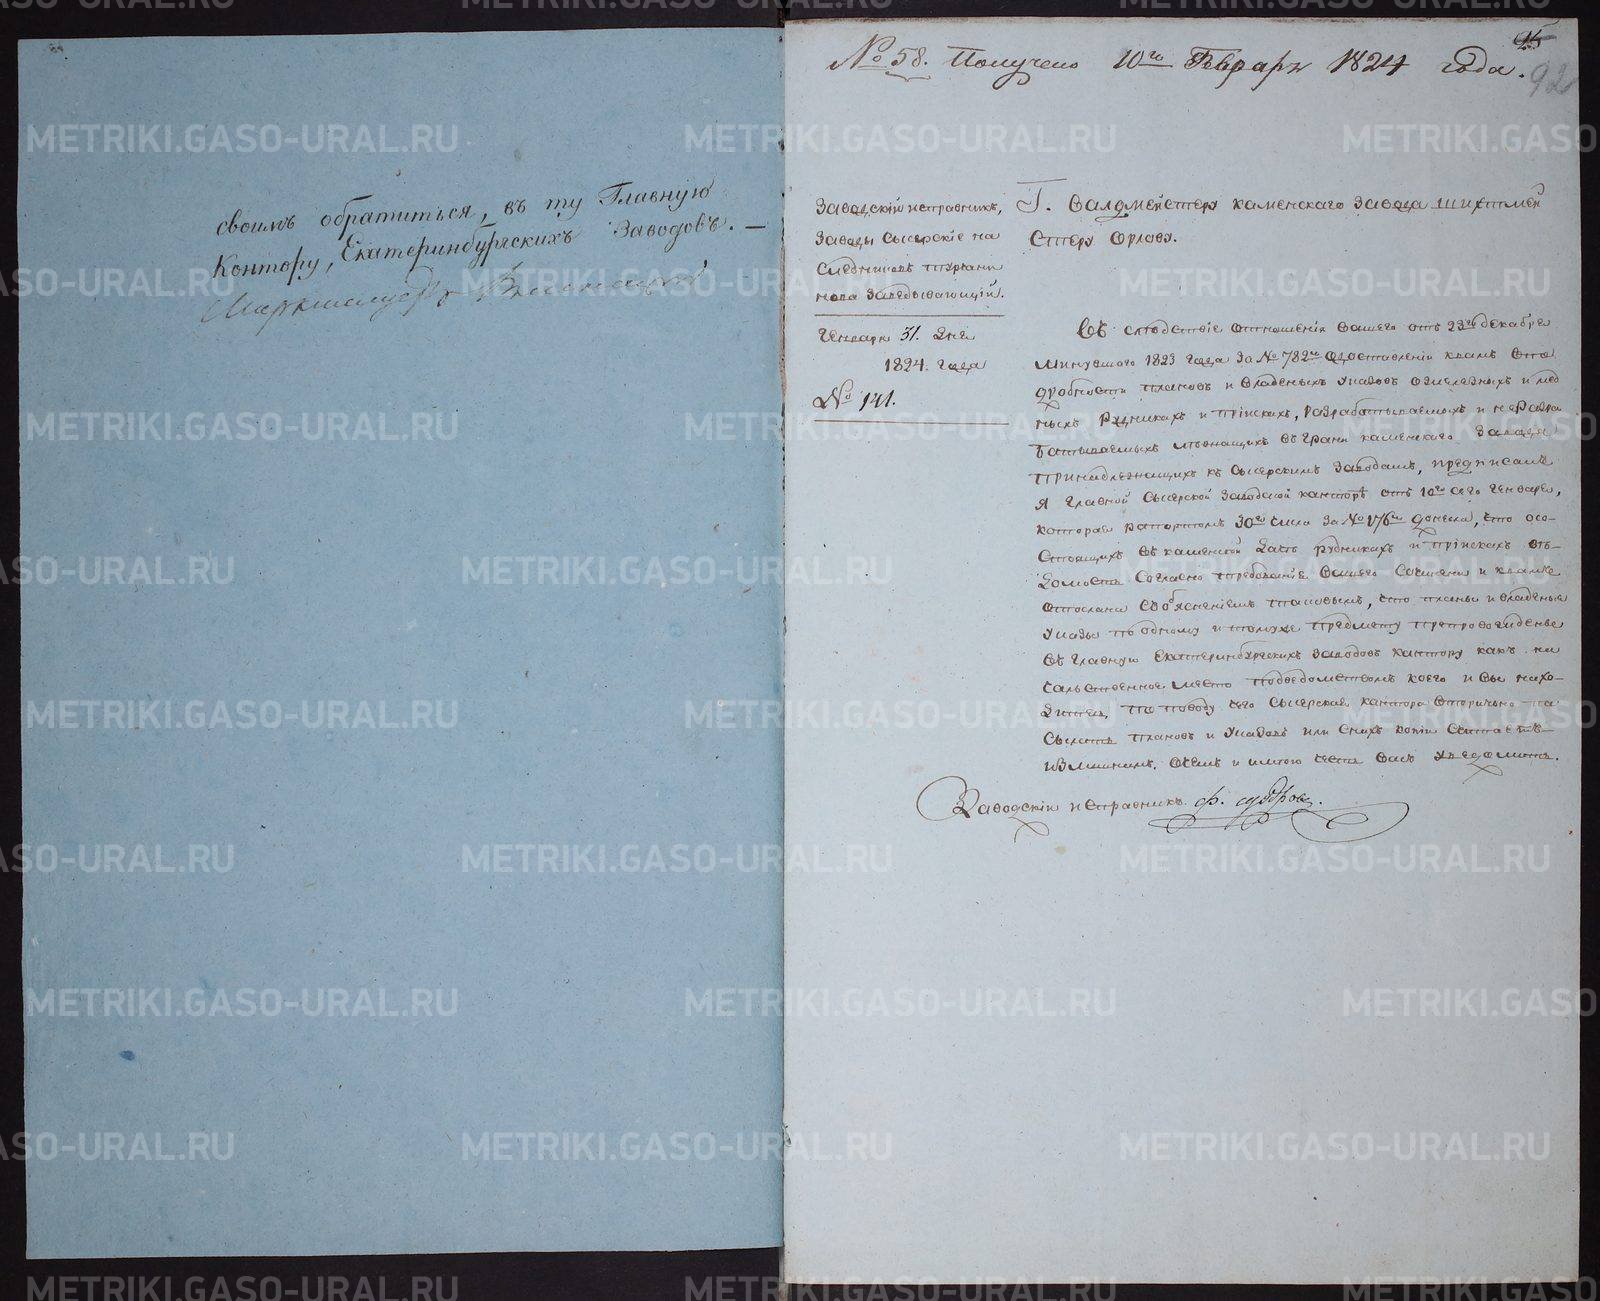 своимъ обратиться, въ ту Главную
Контору, Екатеринбургскихъ Заводовъ. —
95
92
№ 58. Получено 10го Февраря 1824 года.
Заводскій исправникъ,
Заводы Сысерскіе на
следниковъ Турчани
нова Заведывающій.
Генваря 31. дня
1824. года
№ 141.
Г. Валдмейстеру каменскаго завода шихтмей
стеру Орлову.
Въ следствіе отношенія вашего отъ 23го декабря
минувшаго 1823 года за № 782м одоставленіи квамъ опо
дробности плановъ и владеныхъ указовъ ожелезныхъ и мед
ныхъ рудникахъ и пріискахъ, разработываемыхъ и неразра
ботываемыхъ лежащихъ въ грани каменскаго завода
принадлежащихъ къ Сысерскимъ заводамъ, предписалъ
я главной Сысерской заводской канторѣ отъ 10го сего генваря,
которая рапортомъ 30го числа за № 176м донесла, что осо-
стоящихъ въ каменской дачь рудникахъ и пріискахъ въ-
домость согласно требованіе вашего сочинена и квамже
отослана собъясненіемъ таковымъ, что планы и владеные
указы по одному и томуже предмету препровождены
въ главную Екатеринбургскихъ заводовъ кантору какъ на
чальственное место подведомствомъ коего и вы нахо-
дитесь, по поводу чего Сысерская кантора вторично по
сылать плановъ и указовъ или сихъ копіи считаетъ
излишнимъ. о чемъ и имею честь васъ уведомить.
Заводскій исправникъ
METRIKI.GASO-URAL.RU